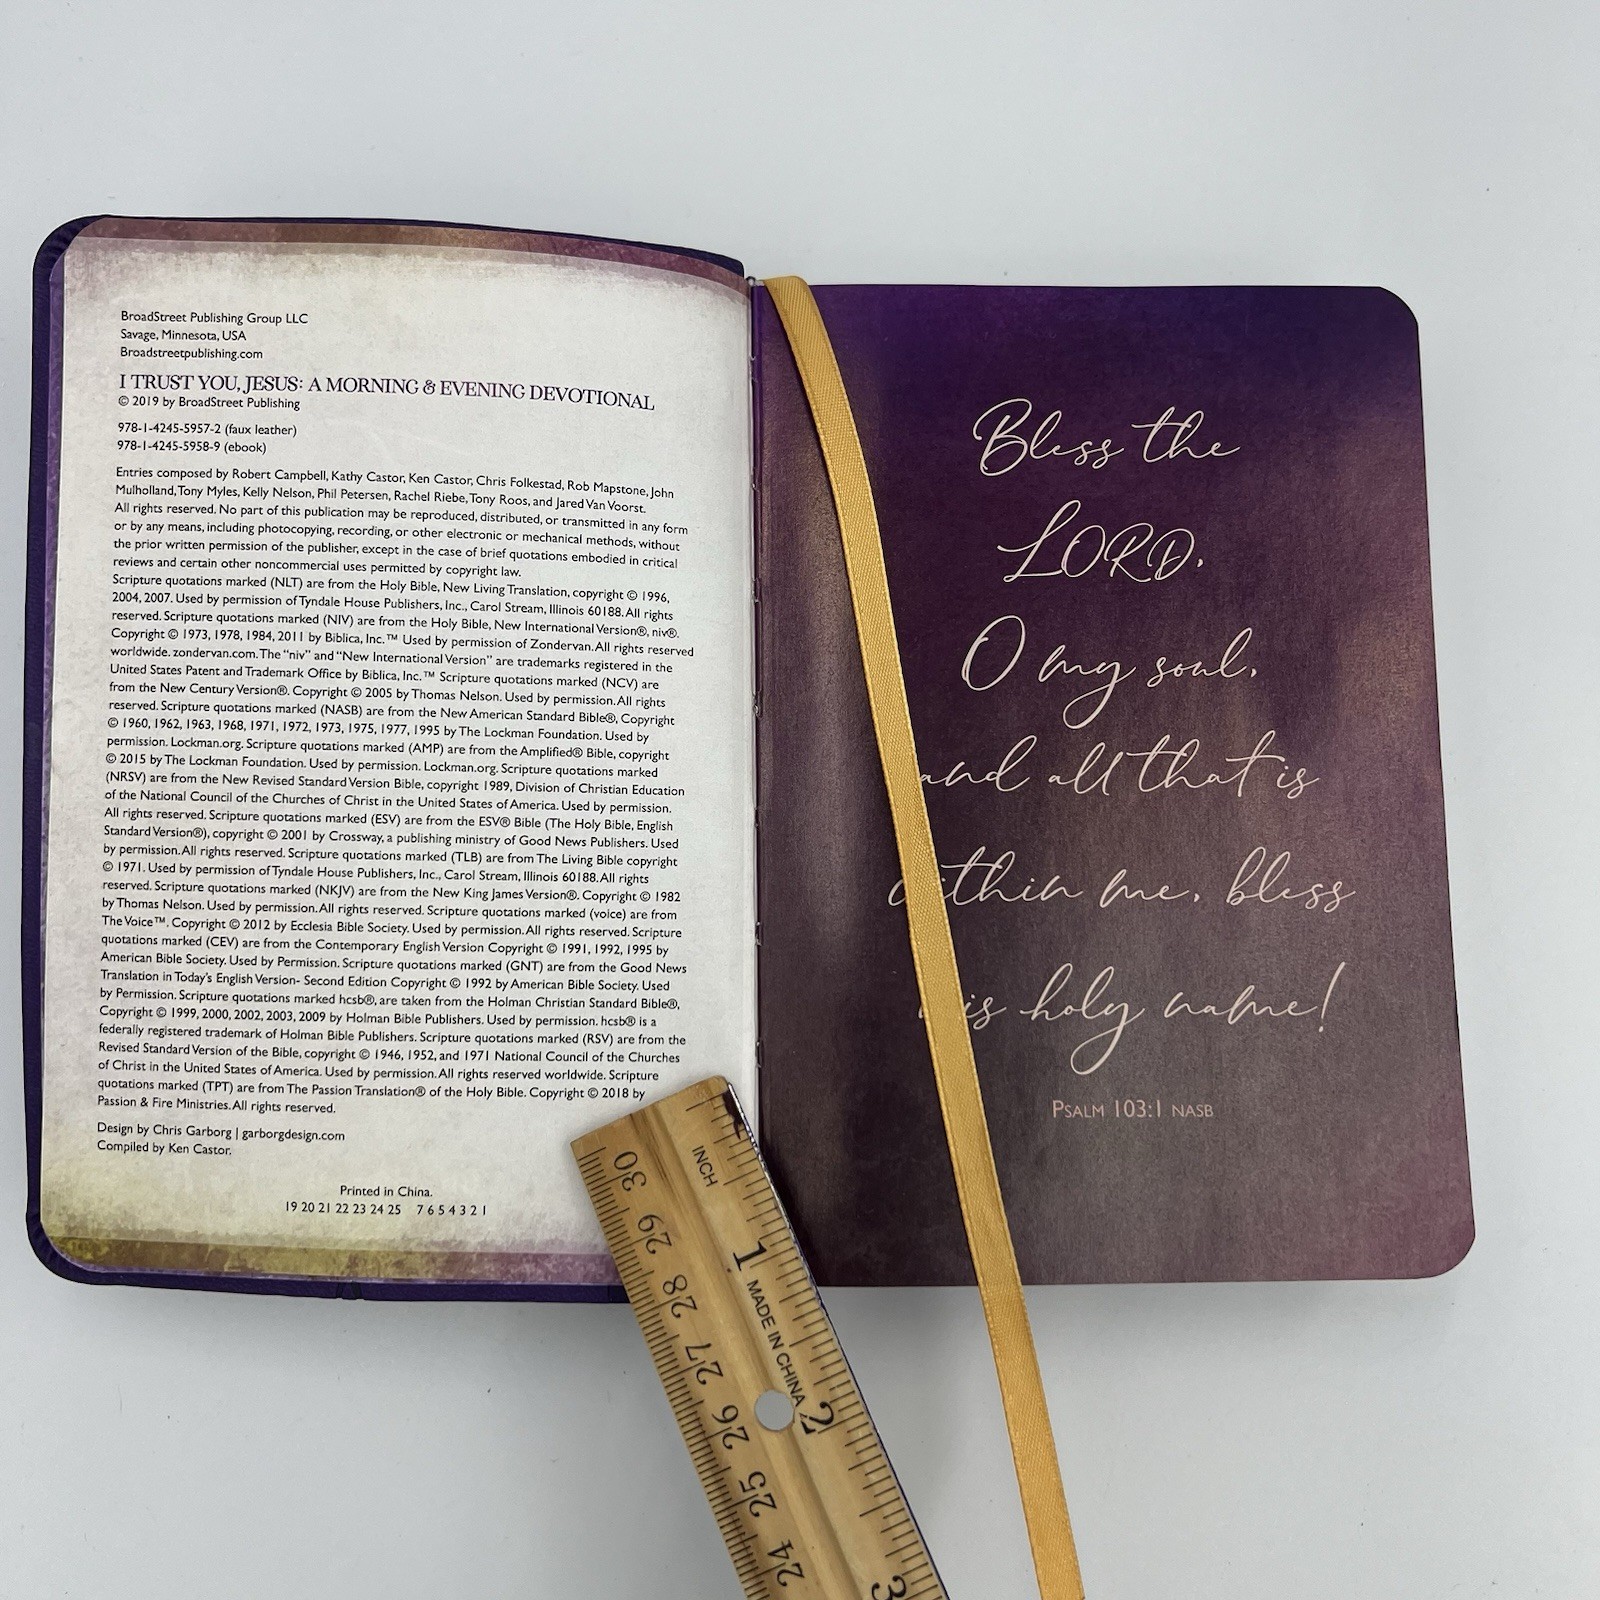 BroadStreet Publishing Group LLC
Savage, Minnesota, USA
Broadstreetpublishing.com
I TRUST YOU, JESUS: A MORNING & EVENING DEVOTIONAL
© 2019 by BroadStreet Publishing
978-1-4245-5957-2 (faux leather)
978-1-4245-5958-9 (ebook)
Entries composed by Robert Campbell, Kathy Castor, Ken Castor, Chris Folkestad, Rob Mapstone, John
Mulholland, Tony Myles, Kelly Nelson, Phil Petersen, Rachel Riebe, Tony Roos, and Jared Van Voorst.
All rights reserved. No part of this publication may be reproduced, distributed, or transmitted in any form
or by any means, including photocopying, recording, or other electronic or mechanical methods, without
the prior written permission of the publisher, except in the case of brief quotations embodied in critical
reviews and certain other noncommercial uses permitted by copyright law.
Scripture quotations marked (NLT) are from the Holy Bible, New Living Translation, copyright © 1996,
2004, 2007. Used by permission of Tyndale House Publishers, Inc., Carol Stream, Illinois 60188. All rights
reserved. Scripture quotations marked (NIV) are from the Holy Bible, New International Version®, niv®.
Copyright © 1973, 1978, 1984, 2011 by Biblica, Inc.™ Used by permission of Zondervan. All rights reserved
worldwide. zondervan.com. The “niv” and “New International Version” are trademarks registered in the
United States Patent and Trademark Office by Biblica, Inc.™ Scripture quotations marked (NCV) are
from the New Century Version®. Copyright © 2005 by Thomas Nelson. Used by permission. All rights
reserved. Scripture quotations marked (NASB) are from the New American Standard Bible®, Copyright
© 1960, 1962, 1963, 1968, 1971, 1972, 1973, 1975, 1977, 1995 by The Lockman Foundation. Used by
permission. Lockman.org. Scripture quotations marked (AMP) are from the Amplified® Bible, copyright
© 2015 by The Lockman Foundation. Used by permission. Lockman.org. Scripture quotations marked
(NRSV) are from the New Revised Standard Version Bible, copyright 1989, Division of Christian Education
of the National Council of the Churches of Christ in the United States of America. Used by permission.
All rights reserved. Scripture quotations marked (ESV) are from the ESV® Bible (The Holy Bible, English
Standard Version®), copyright © 2001 by Crossway, a publishing ministry of Good News Publishers. Used
by permission. All rights reserved. Scripture quotations marked (TLB) are from The Living Bible copyright
© 1971. Used by permission of Tyndale House Publishers, Inc., Carol Stream, Illinois 60188. All rights
reserved. Scripture quotations marked (NKJV) are from the New King James Version®. Copyright © 1982
by Thomas Nelson. Used by permission. All rights reserved. Scripture quotations marked (voice) are from
The Voice™. Copyright © 2012 by Ecclesia Bible Society. Used by permission. All rights reserved. Scripture
quotations marked (CEV) are from the Contemporary English Version Copyright © 1991, 1992, 1995 by
American Bible Society. Used by Permission. Scripture quotations marked (GNT) are from the Good News
Translation in Today’s English Version- Second Edition Copyright © 1992 by American Bible Society. Used
by Permission. Scripture quotations marked hcsb®, are taken from the Holman Christian Standard Bible®,
Copyright © 1999, 2000, 2002, 2003, 2009 by Holman Bible Publishers. Used by permission. hcsb® is a
federally registered trademark of Holman Bible Publishers. Scripture quotations marked (RSV) are from the
Revised Standard Version of the Bible, copyright © 1946, 1952, and 1971 National Council of the Churches
of Christ in the United States of America. Used by permission. All rights reserved worldwide. Scripture
quotations marked (TPT) are from The Passion Translation® of the Holy Bible. Copyright © 2018 by
Passion & Fire Ministries. All rights reserved.
Design by Chris Garborg | garborgdesign.com
Compiled by Ken Castor.
Printed in China.
19 20 21 22 23 24 25 7 6 5 4 3 2 1
Bless the
LORD,
O my soul,
and all that is
within me, bless
his holy name!
PSALM 103:1 NASB
INCH
1
MADE IN CHINA
2
3
30
29
28
27
26
25
24